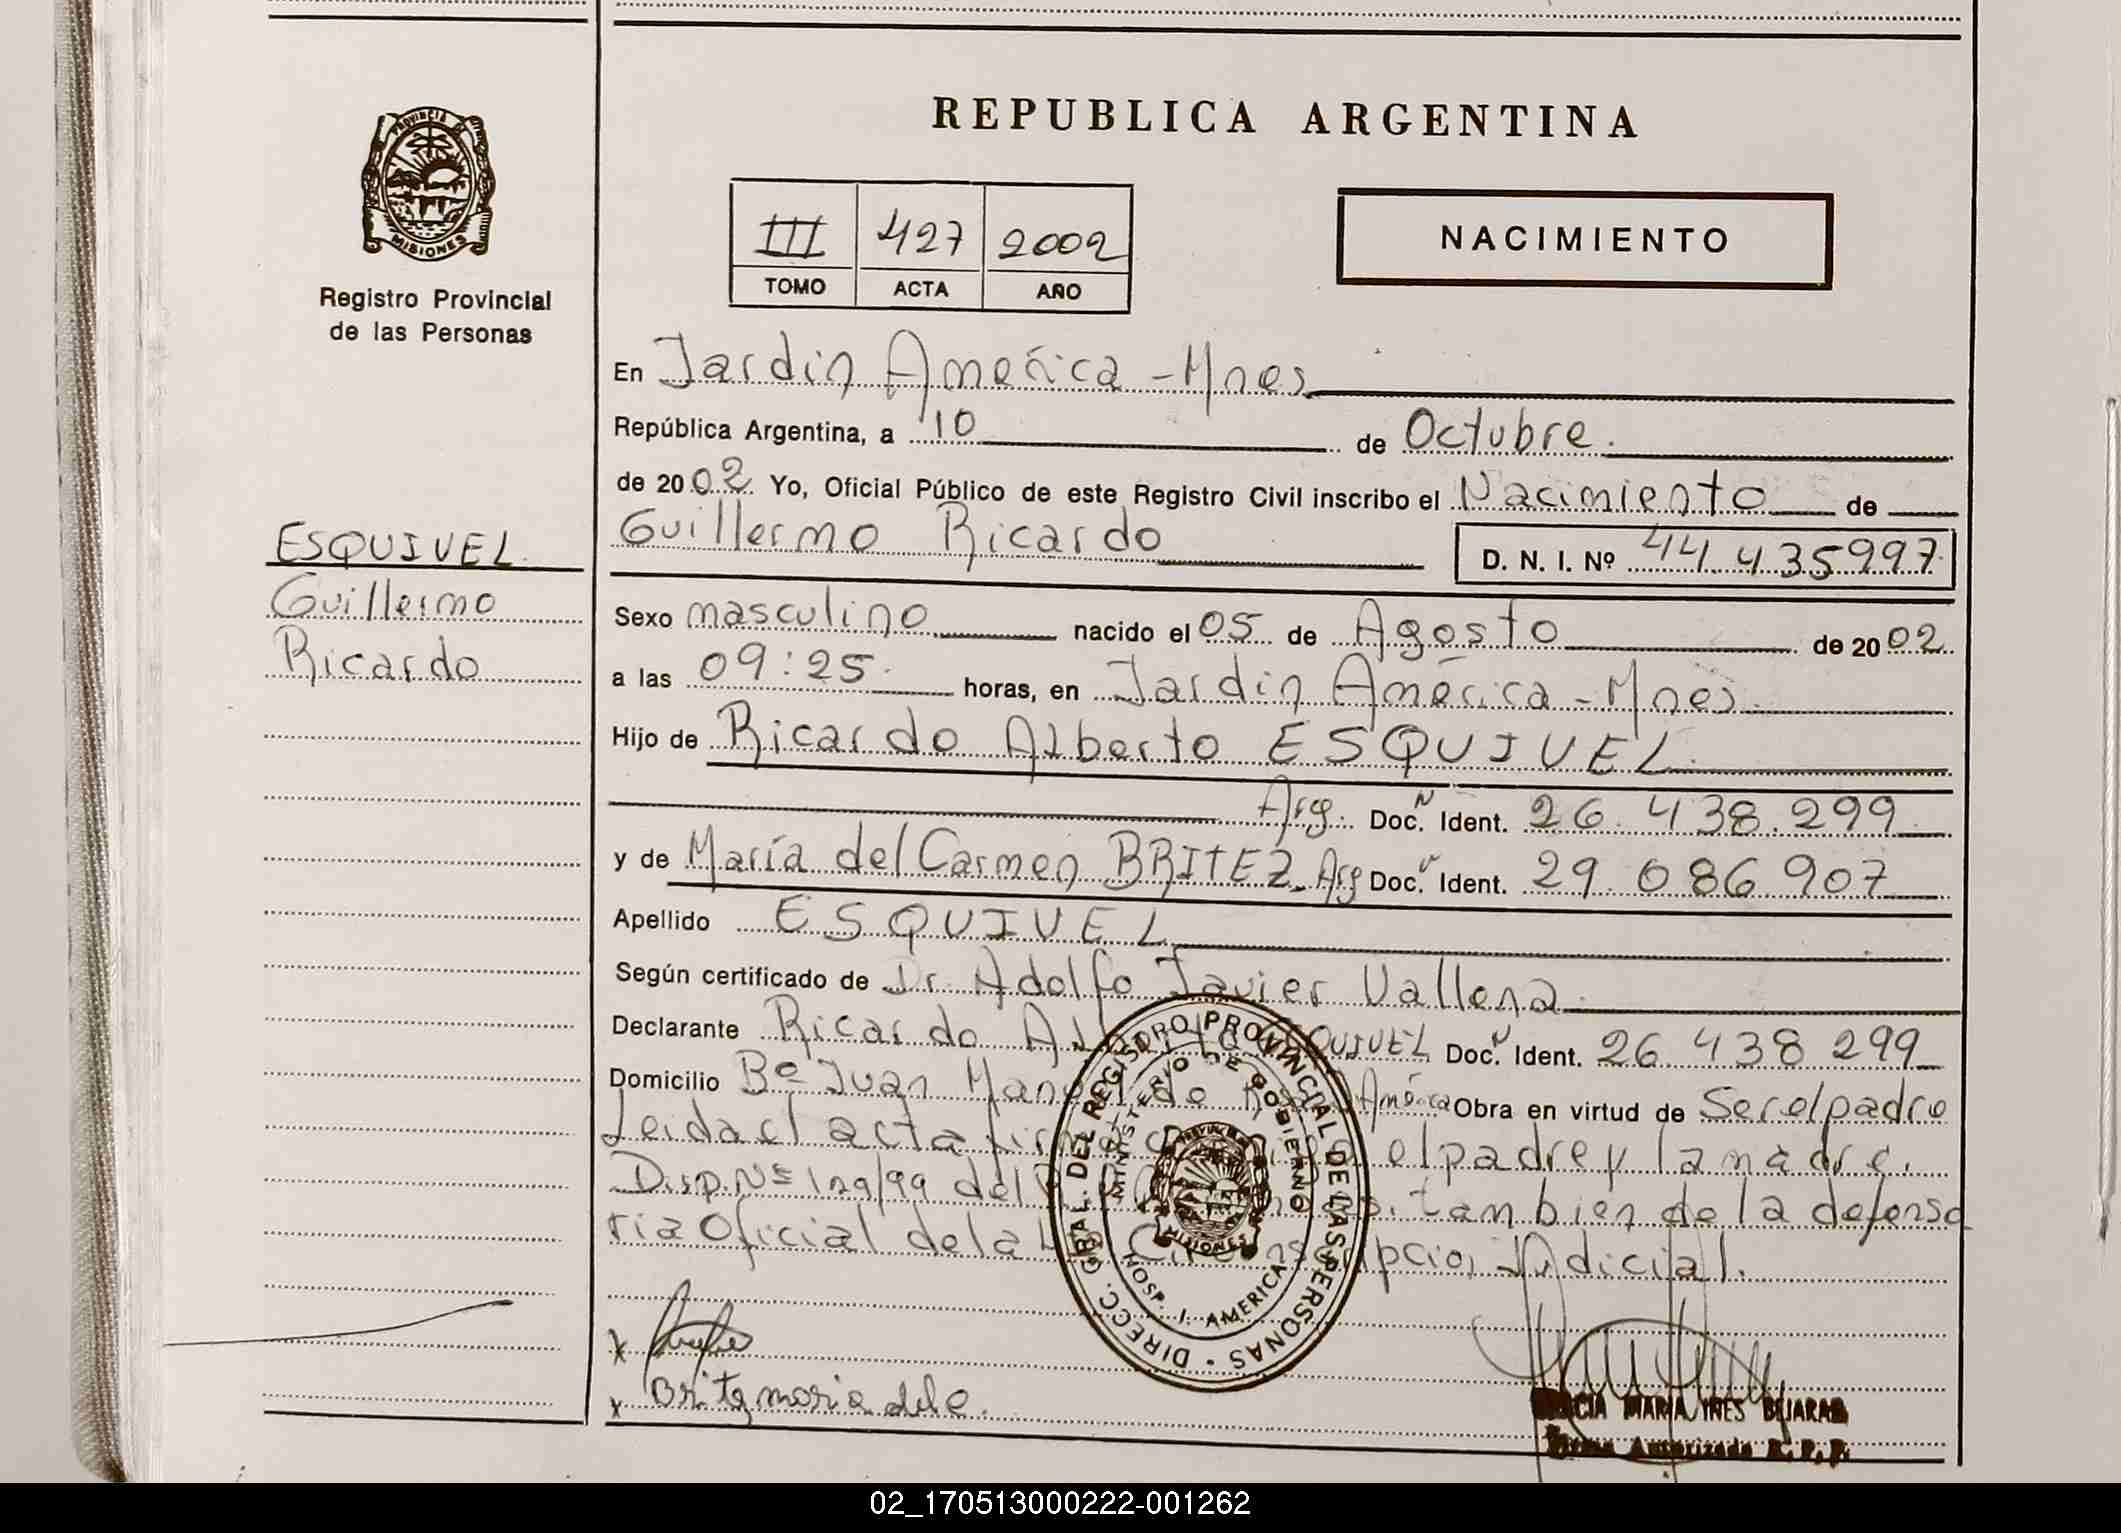 REPUBLICA ARGENTINA
PROVINCIA
MISIONES
Registro Provincial
de las Personas
III 427 2002
TOMO ACTA AÑO
NACIMIENTO
En Jardin América - Mnes
República Argentina, a 10 de Octubre.
de 2002 Yo, Oficial Público de este Registro Civil inscribo el Nacimiento de
Guillermo Ricardo
D. N. I. Nº 44.435997
ESQUIVEL
Guillermo
Ricardo
Sexo masculino nacido el 05 de Agosto de 2002
a las 09:25 horas, en Jardin América - Mnes.
Hijo de Ricardo Alberto ESQUIVEL
Arg. Doc. N Ident. 26.438.299
y de María del Carmen BRITEZ. Arg Doc. Ident. 29.086.907
Apellido ESQUIVEL
Según certificado de Dr. Adolfo Javier Vallena
Declarante Ricardo QUIVEL Doc. Ident. 26.438.299
Domicilio Bº Juan Manuel de América Obra en virtud de Ser el padre
Leida el acta el padre y la madre.
Disp. Nº 129/99 del tambien de la defenso
ria Oficial de la Judicial.
DIRECC. GRAL. DEL REGISTRO PROVINCIAL DE LAS PERSONAS
MINISTERIO DE GOBIERNO
PROVINCIA
MISIONES
HOSP. J. AMERICA
x
x Britz maria del c.
MARIA INES BEJARAN
Firma Autorizada R. P. P.
02_170513000222-001262